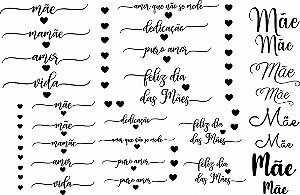 mãe
mamãe
amor
vida
amor que não se mede
dedicação
puro amor
feliz dia
das Mães
mãe
mãe
mamãe
amor
vida
dedicação
amor que não se mede
puro amor
puro amor
feliz dia
das Mães
feliz dia
das Mães
Mãe
Mãe
Mãe
Mãe
Mãe
Mãe
Mãe
Mãe